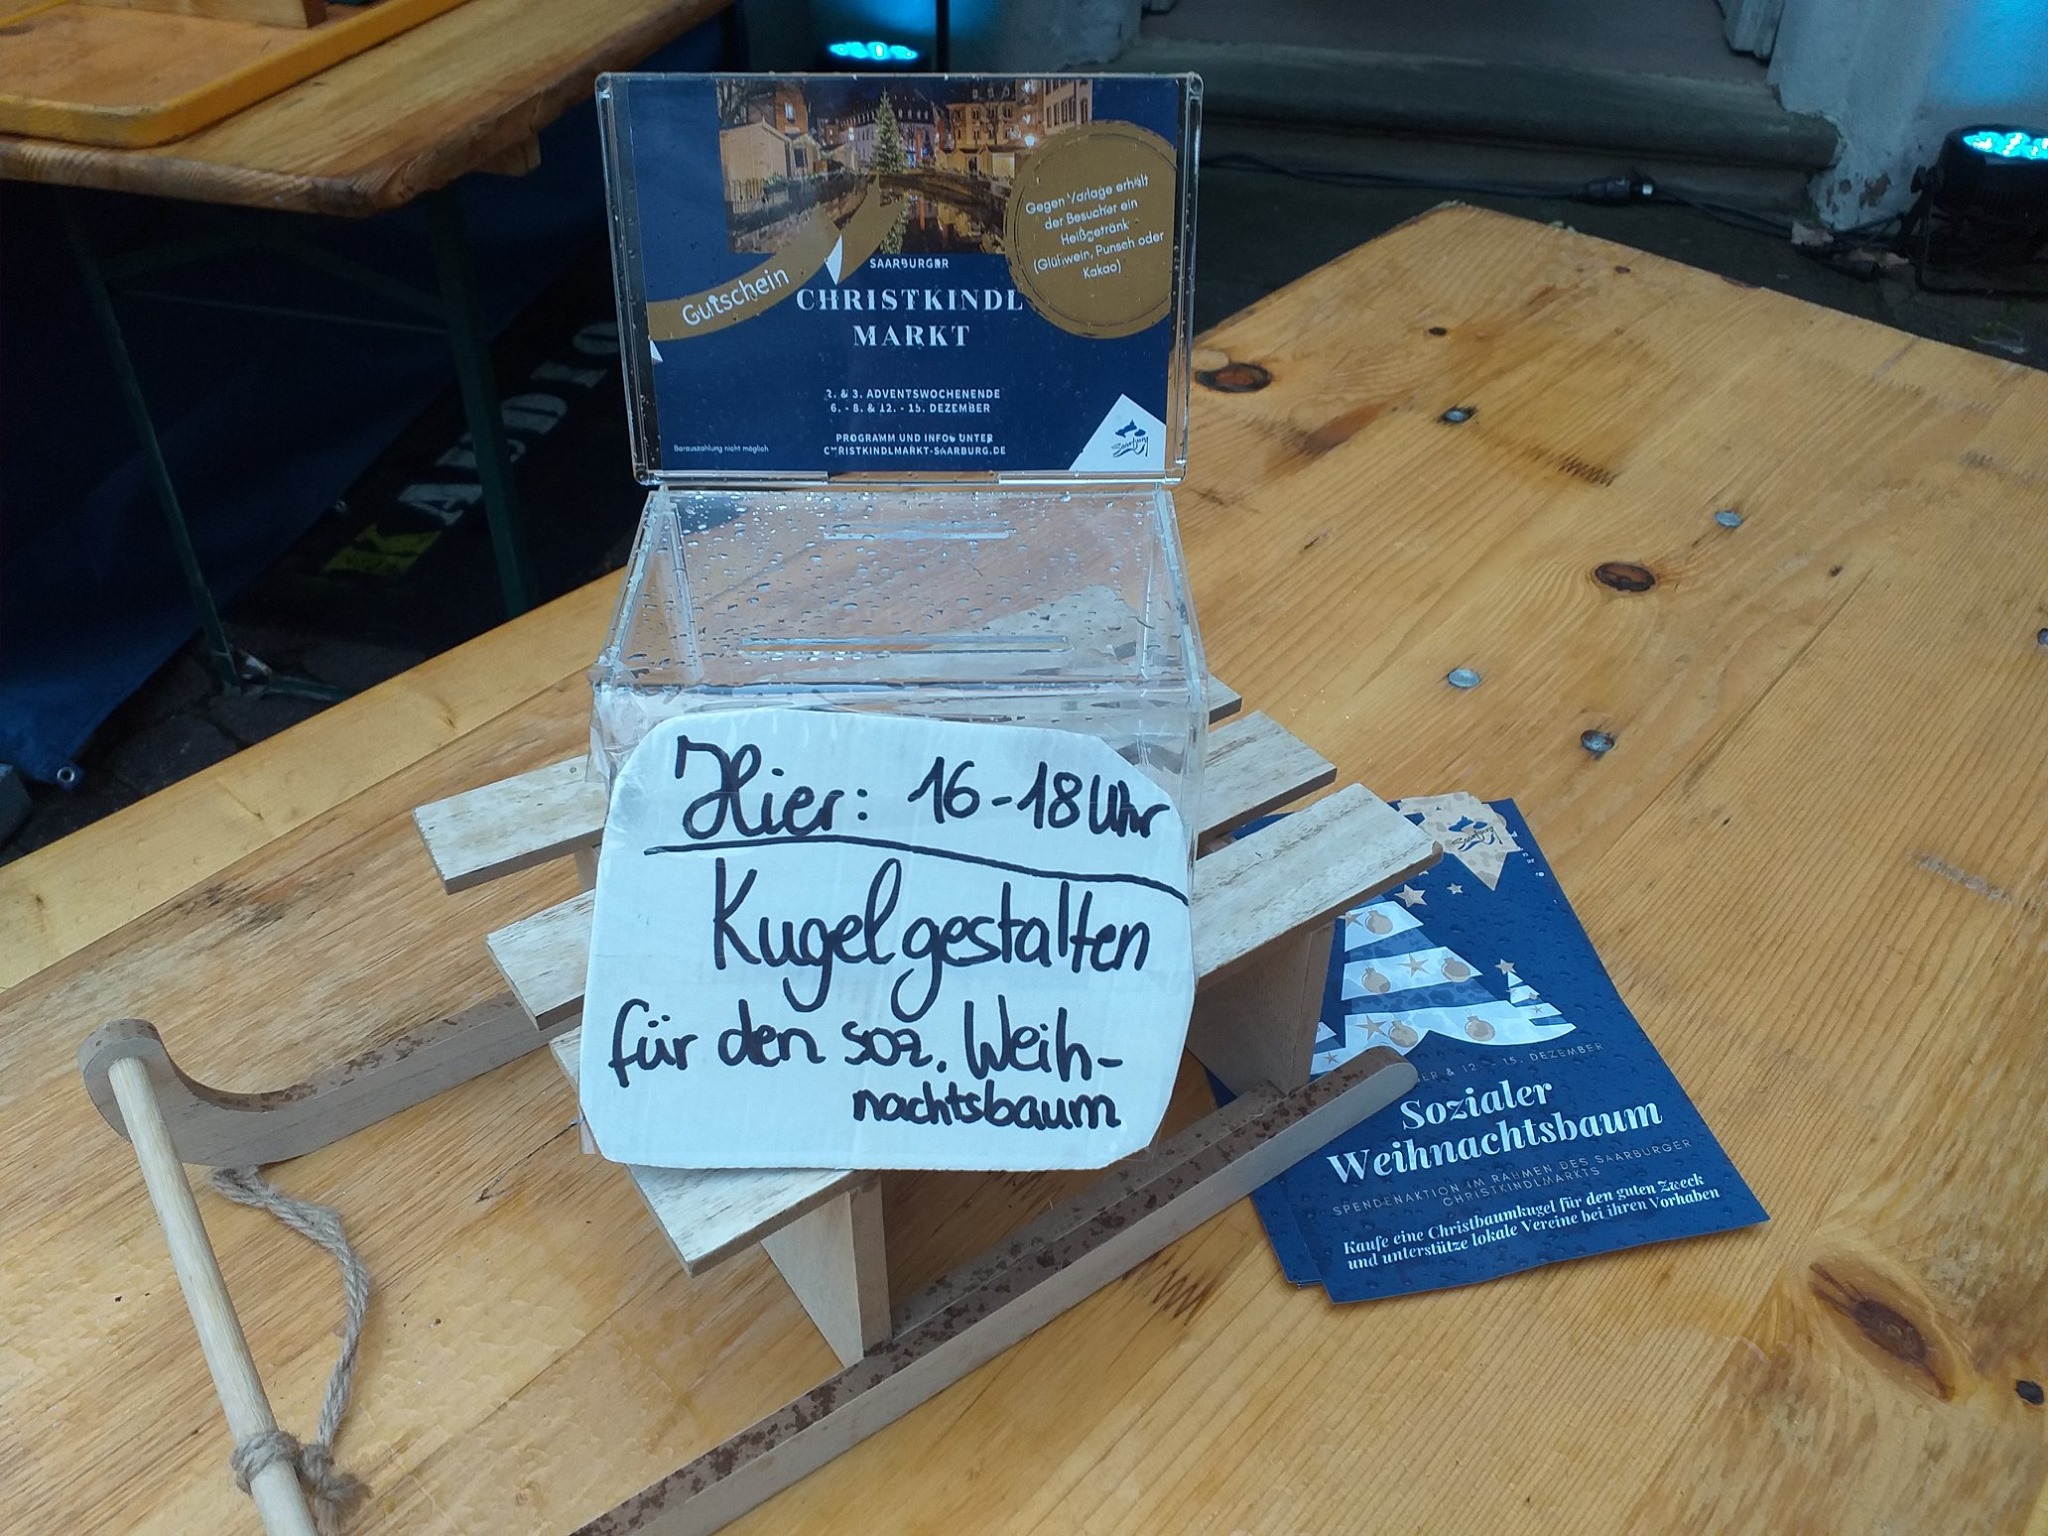 Gutschein
Gegen Vorlage erhält
der Besucher ein
Heißgetränk
(Glühwein, Punsch oder
Kakao)
SAARBURGER
CHRISTKINDL
MARKT
2. & 3. ADVENTSWOCHENENDE
6. - 8. & 12. - 15. DEZEMBER
PROGRAMM UND INFOS UNTER
CHRISTKINDLMARKT-SAARBURG.DE
Barauszahlung nicht möglich
Saarburg
K AUDIO
Hier: 16-18 Uhr
Kugel gestalten
für den soz. Weih-
nachtsbaum
Saarburg
BER & 12. - 15. DEZEMBER
Sozialer
Weihnachtsbaum
SPENDENAKTION IM RAHMEN DES SAARBURGER
CHRISTKINDLMARKTS
Kaufe eine Christbaumkugel für den guten Zweck
und unterstütze lokale Vereine bei ihren Vorhaben